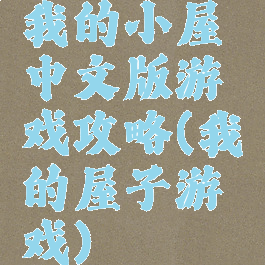 我的小屋
中文版游
戏攻略(我
的屋子游
戏)